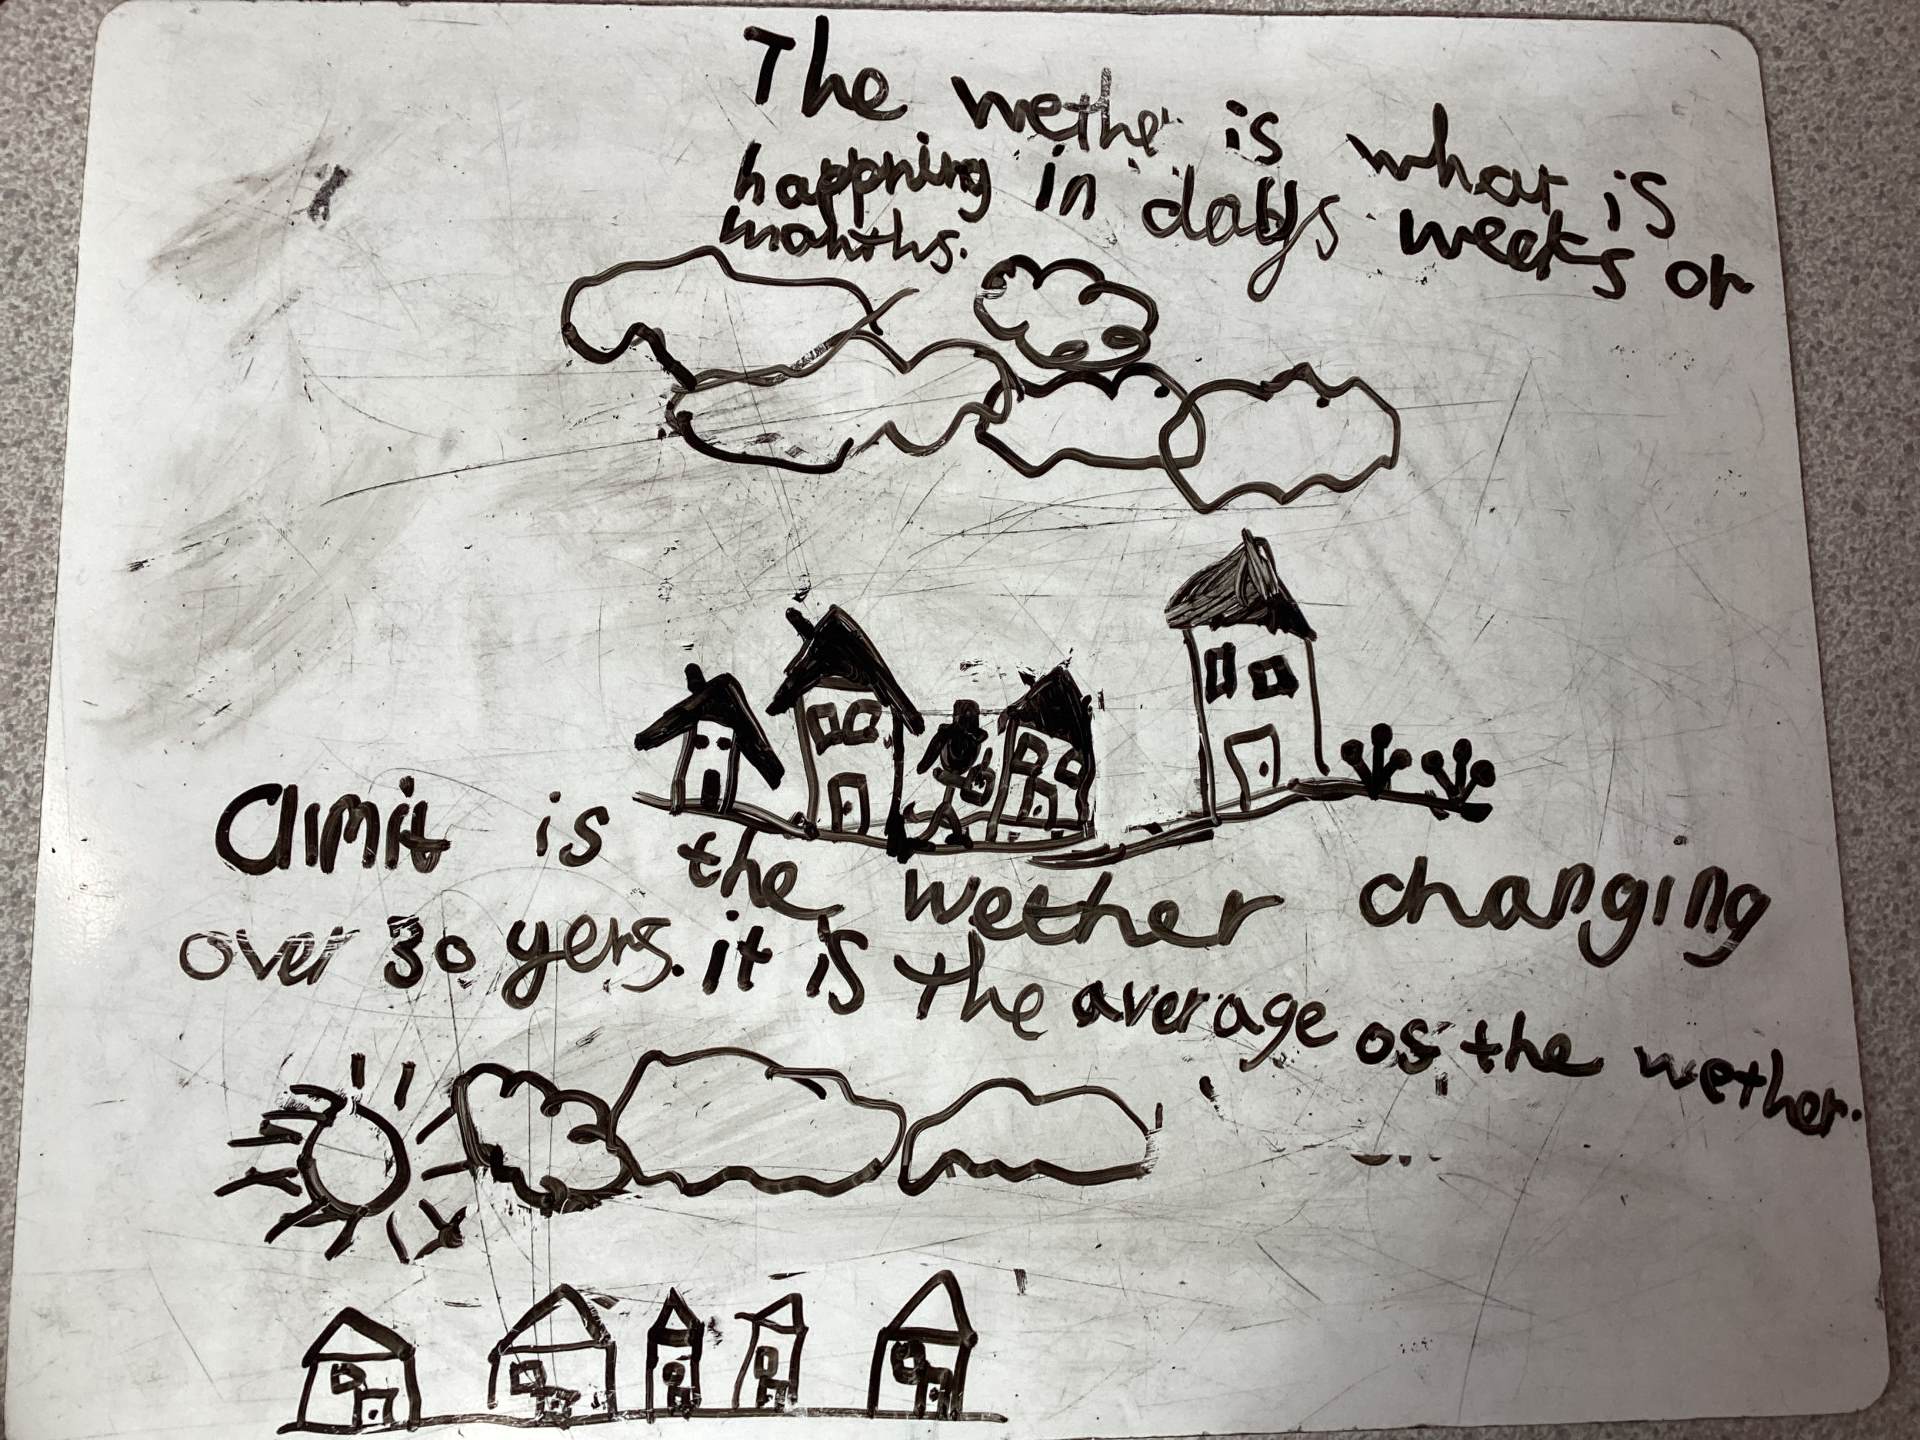 The wether is what is
happning in days weeks or
months.
Climit is the wether changing
over 30 yers. it is the average os the wether.